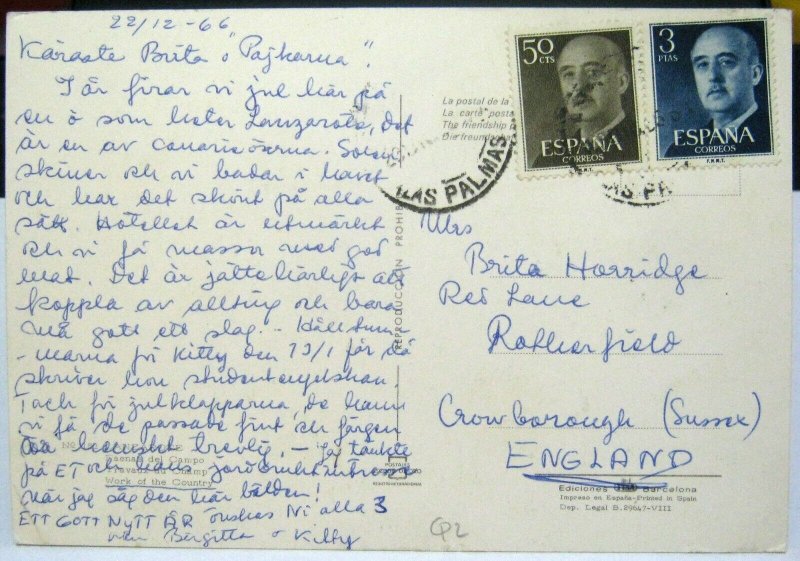 22/12-66
Käraste Brita o "Pojkarna".
I år firar vi jul här på
en ö som heter Lanzarote, det
är en av canarieöarna. Solen
skiner och vi badar i havet
och har det skönt på alla
sätt. Hotellet är utmärkt
och vi få massor med god
mat. Det är jättehärligt att
koppla av allting och bara
må gott ett slag. - Håll tum-
-marna för Kitty den 13/1 för då
skriver hon studentengelskan.
Tack för julklapparna, de hann
vi få, de passade fint och färgen
var trevlig. - Jag tänkte
på ET och
när jag såg den här bilden!
ETT GOTT NYTT ÅR önskas Ni alla 3
Birgitta o Kitty
Faenas del Campo
Travaux du Champ
Work of the Country
La postal de la
La carte posta
The friendship p
Die freundsch
REPRODUCCION PROHIBI
50
CTS
ESPAÑA
CORREOS
3
PTAS
ESPAÑA
CORREOS
F.N.M.T.
LAS PALMAS
LAS PA
Mrs
Brita Horridge
Red Lane
Rotherfield
Crowborough (Sussex)
ENGLAND
POSTALES
Ediciones Barcelona
Impreso en España-Printed in Spain
Dep. Legal B. 29647-VIII